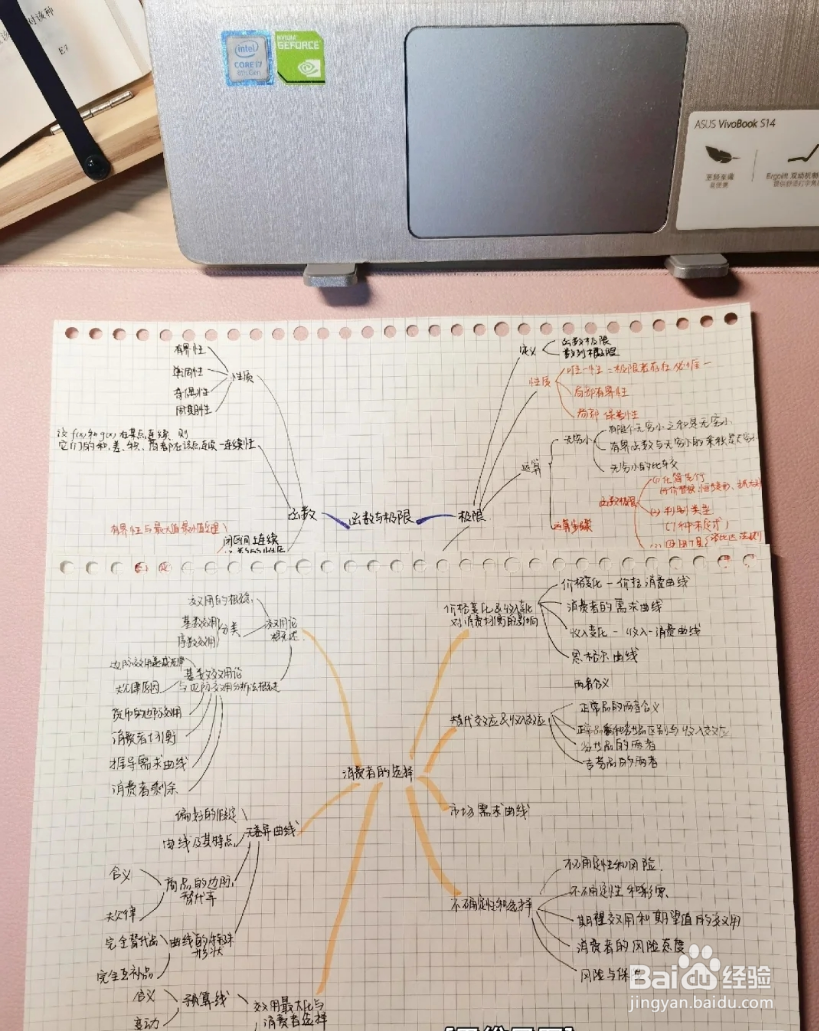 对该种
intel
CORE i7
8th Gen
NVIDIA
GEFORCE
ASUS VivoBook S14
有界性
单调性
奇偶性
周期性
性质
设 f(x) 和 g(x) 在某点连续, 则
它们的和、差、积、商都在该点连续
连续性
函数
函数与极限
极限
有界性与最大值最小值定理
闭区间上连续
定义
函数极限
数列极限
性质
唯一性
局部有界性
局部保号性
运算
无穷小
有限个无穷小之和是无穷小
有界函数与无穷小的乘积是无穷小
无穷小的比较
函数极限
(1) 化简先行
(2) 判断类型
(7种未定式)
效用的概念
基数效用
序数效用
分类
效用论
概述
边际效用递减规律
基数效用论
与边际效用分析法概述
货币的边际效用
消费者均衡
推导需求曲线
消费者剩余
消费者的选择
偏好的假定
曲线及其特点
无差异曲线
含义
商品的边际
替代率
完全替代品
完全互补品
曲线的特殊
形状
含义
变动
预算线
效用最大化与
消费者选择
价格变化及收入变化
对消费均衡的影响
价格变化 - 价格消费曲线
消费者的需求曲线
收入变化 - 收入-消费曲线
恩格尔曲线
替代效应及收入效应
两者含义
正常品的两者含义
正常品和劣等品区别与收入效应
劣等品的两者
吉芬品的两者
市场需求曲线
不确定性和选择
不确定性和风险
不确定性和彩票
期望效用和期望值的效用
消费者的风险态度
风险与保
Baidu 经验
jingyan.baidu.com